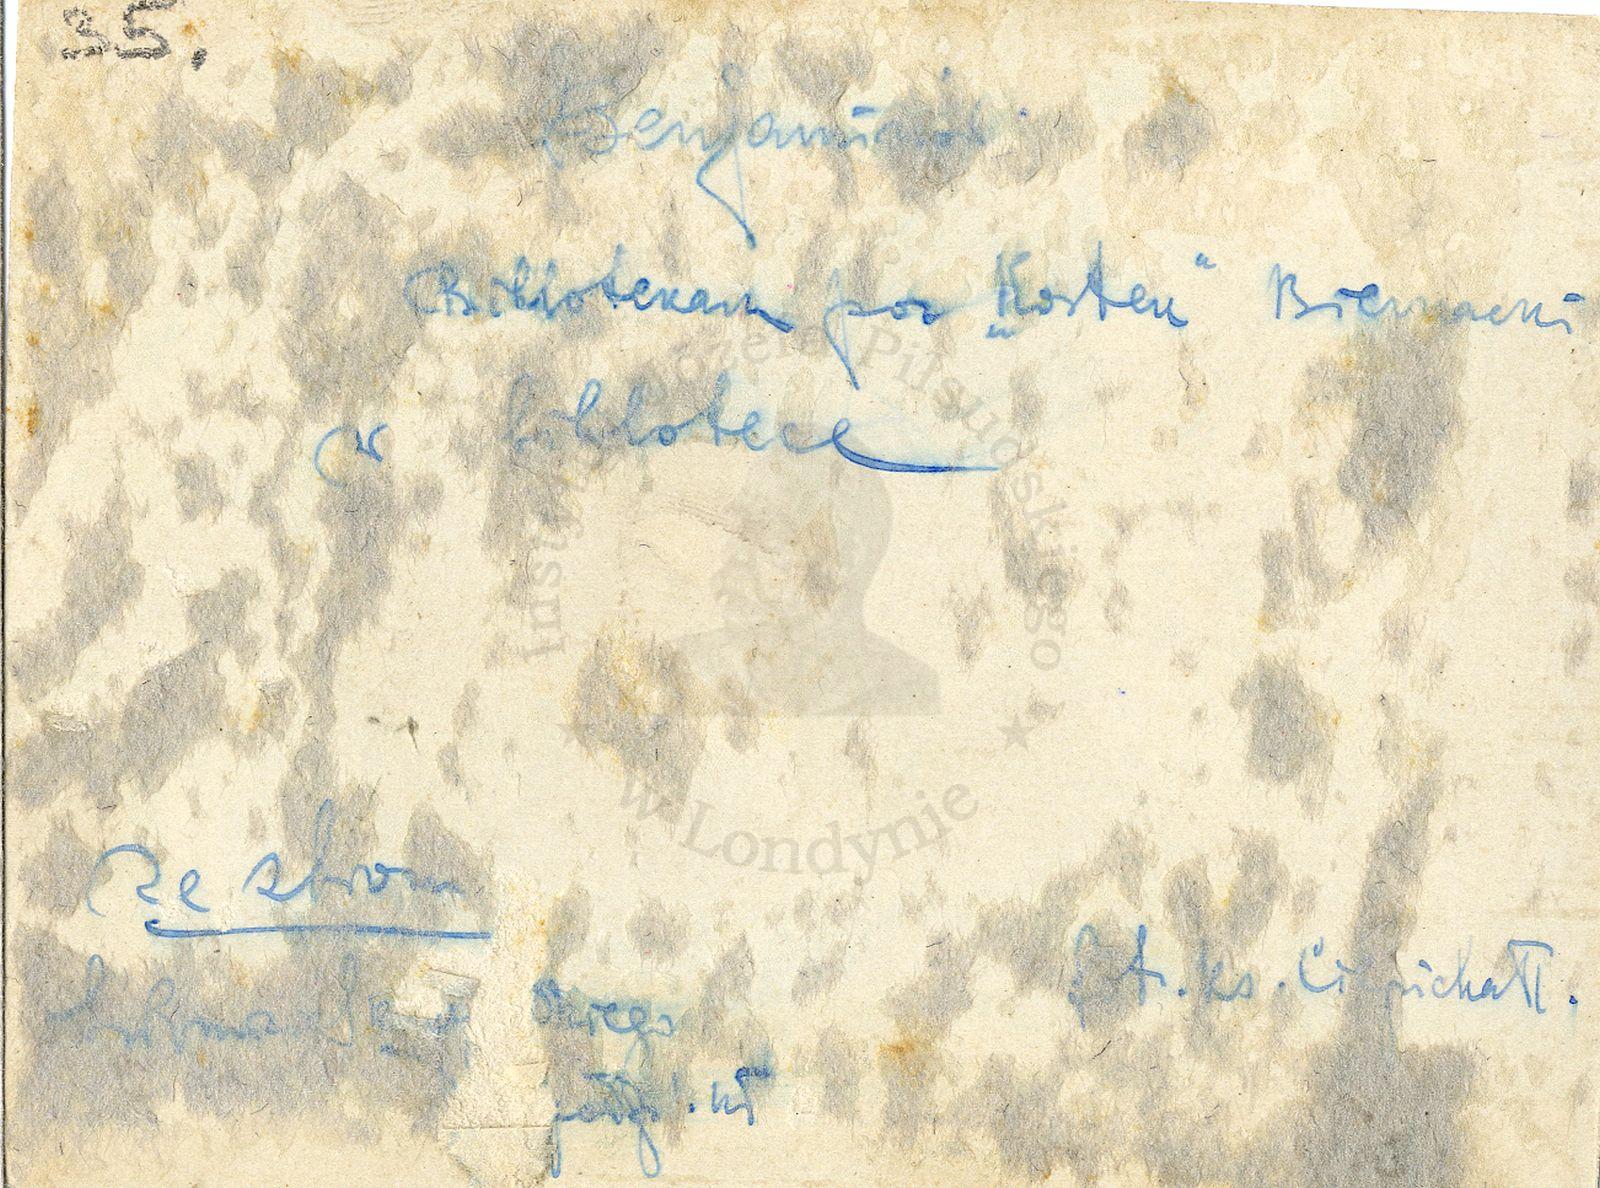 35.
Benjaminów
Bibliotekarz por „Kostek” Biernacki
w bibliotece
Ze zbiorów
skiego
fot. ks. Ciepichałł.
Instytut Józefa Piłsudskiego
w Londynie